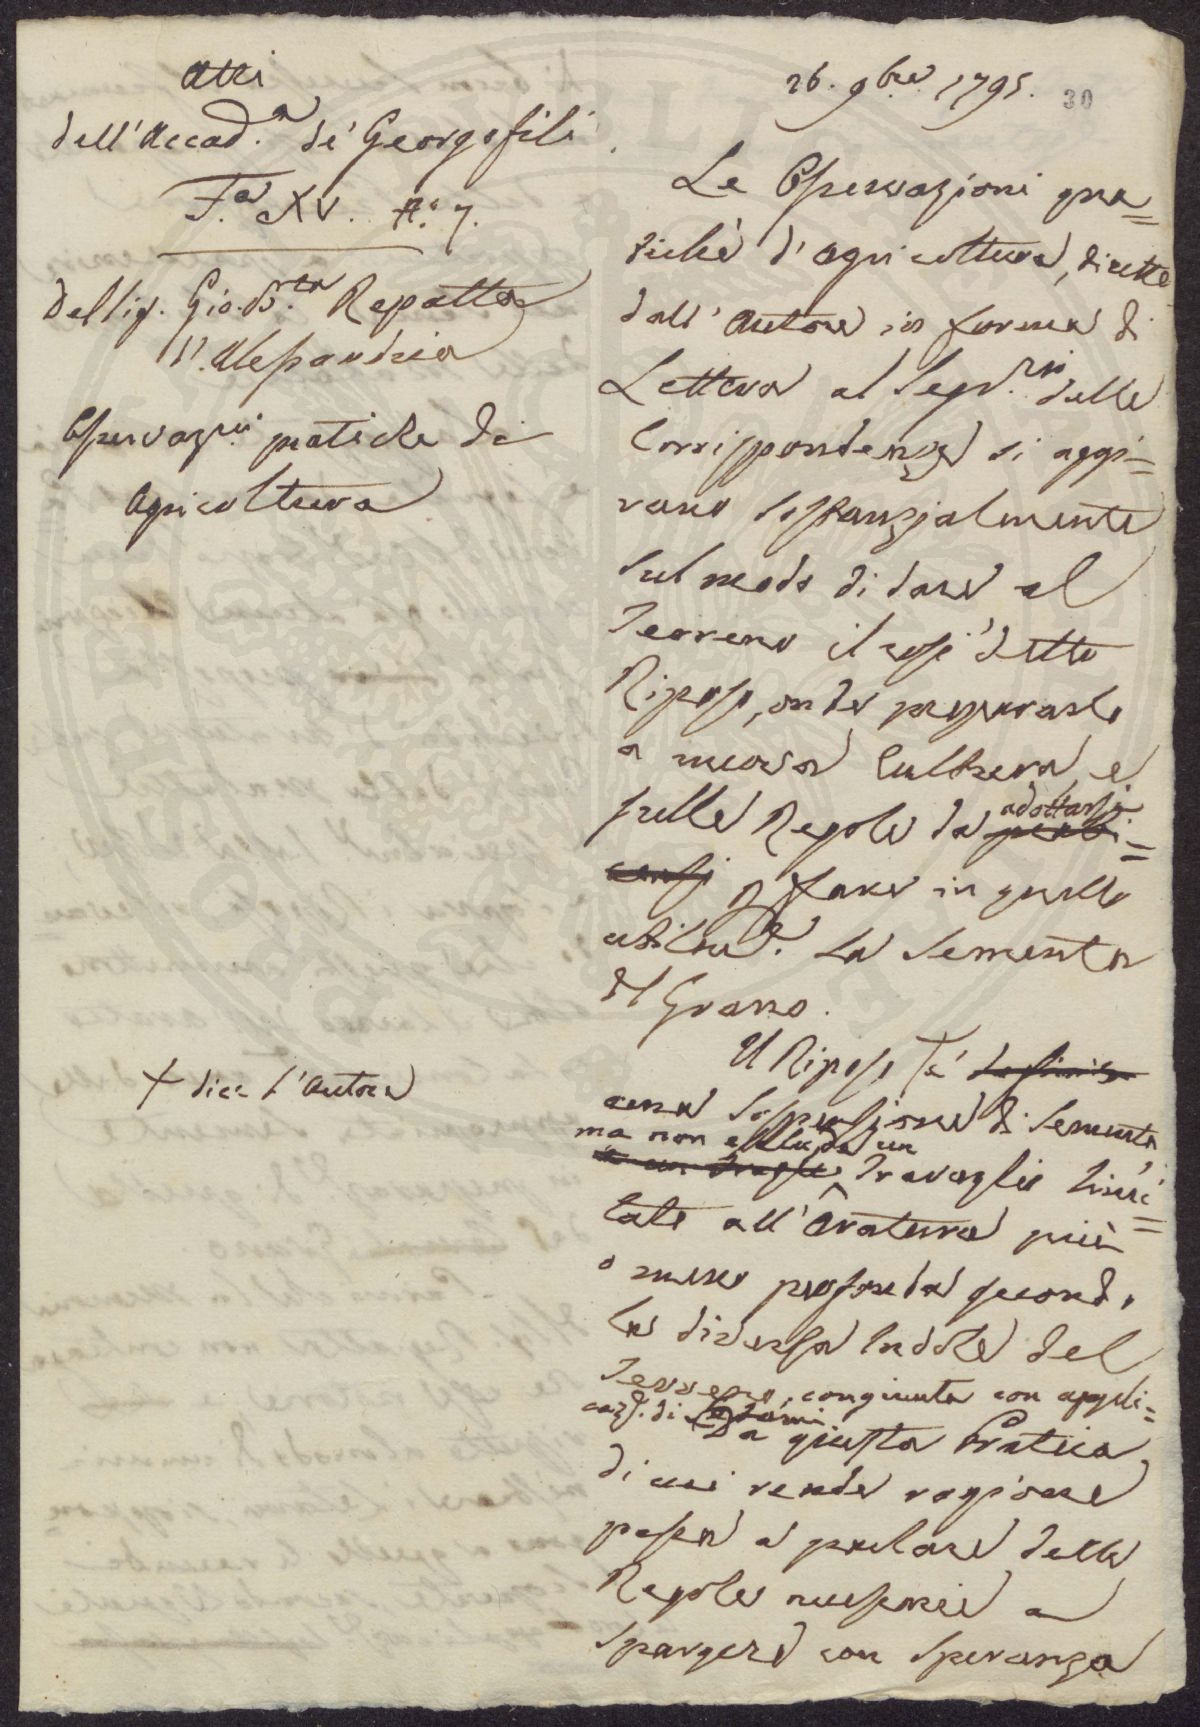 Atti
dell'Accad.a de' Georgofili
F.a XV. N.o 7.
Del Sig. Gio. B.ta Repatta
d'Alessandria
Osservaz.ni pratiche di
Agricoltura
+ dice l'Autore
26. 9bre 1795.
30
Le Osservazioni pra=
tiche d'Agricoltura, dirette
dall'Autore in forma di
Lettera al Segr.rio delle
Corrispondenze si aggi=
rano sostanzialmente
sul modo di dare al
Terreno il così detto
Riposo, onde prepararlo
a nuova Cultura, e
sulle Regole da adottarsi
p fare in quello
utilm.e la Sementa
del Grano.
Il Riposo + è
una sospensione di Sementa
ma non esclude un
Travaglio limi=
tato all'Aratura più
o meno profonda secondo
la diversa Indole del
Terreno, congiunta con appli=
caz.e di
Da questa Pratica,
di cui rende ragione
passa a parlare delle
Regole necessarie a
spargere con speranza